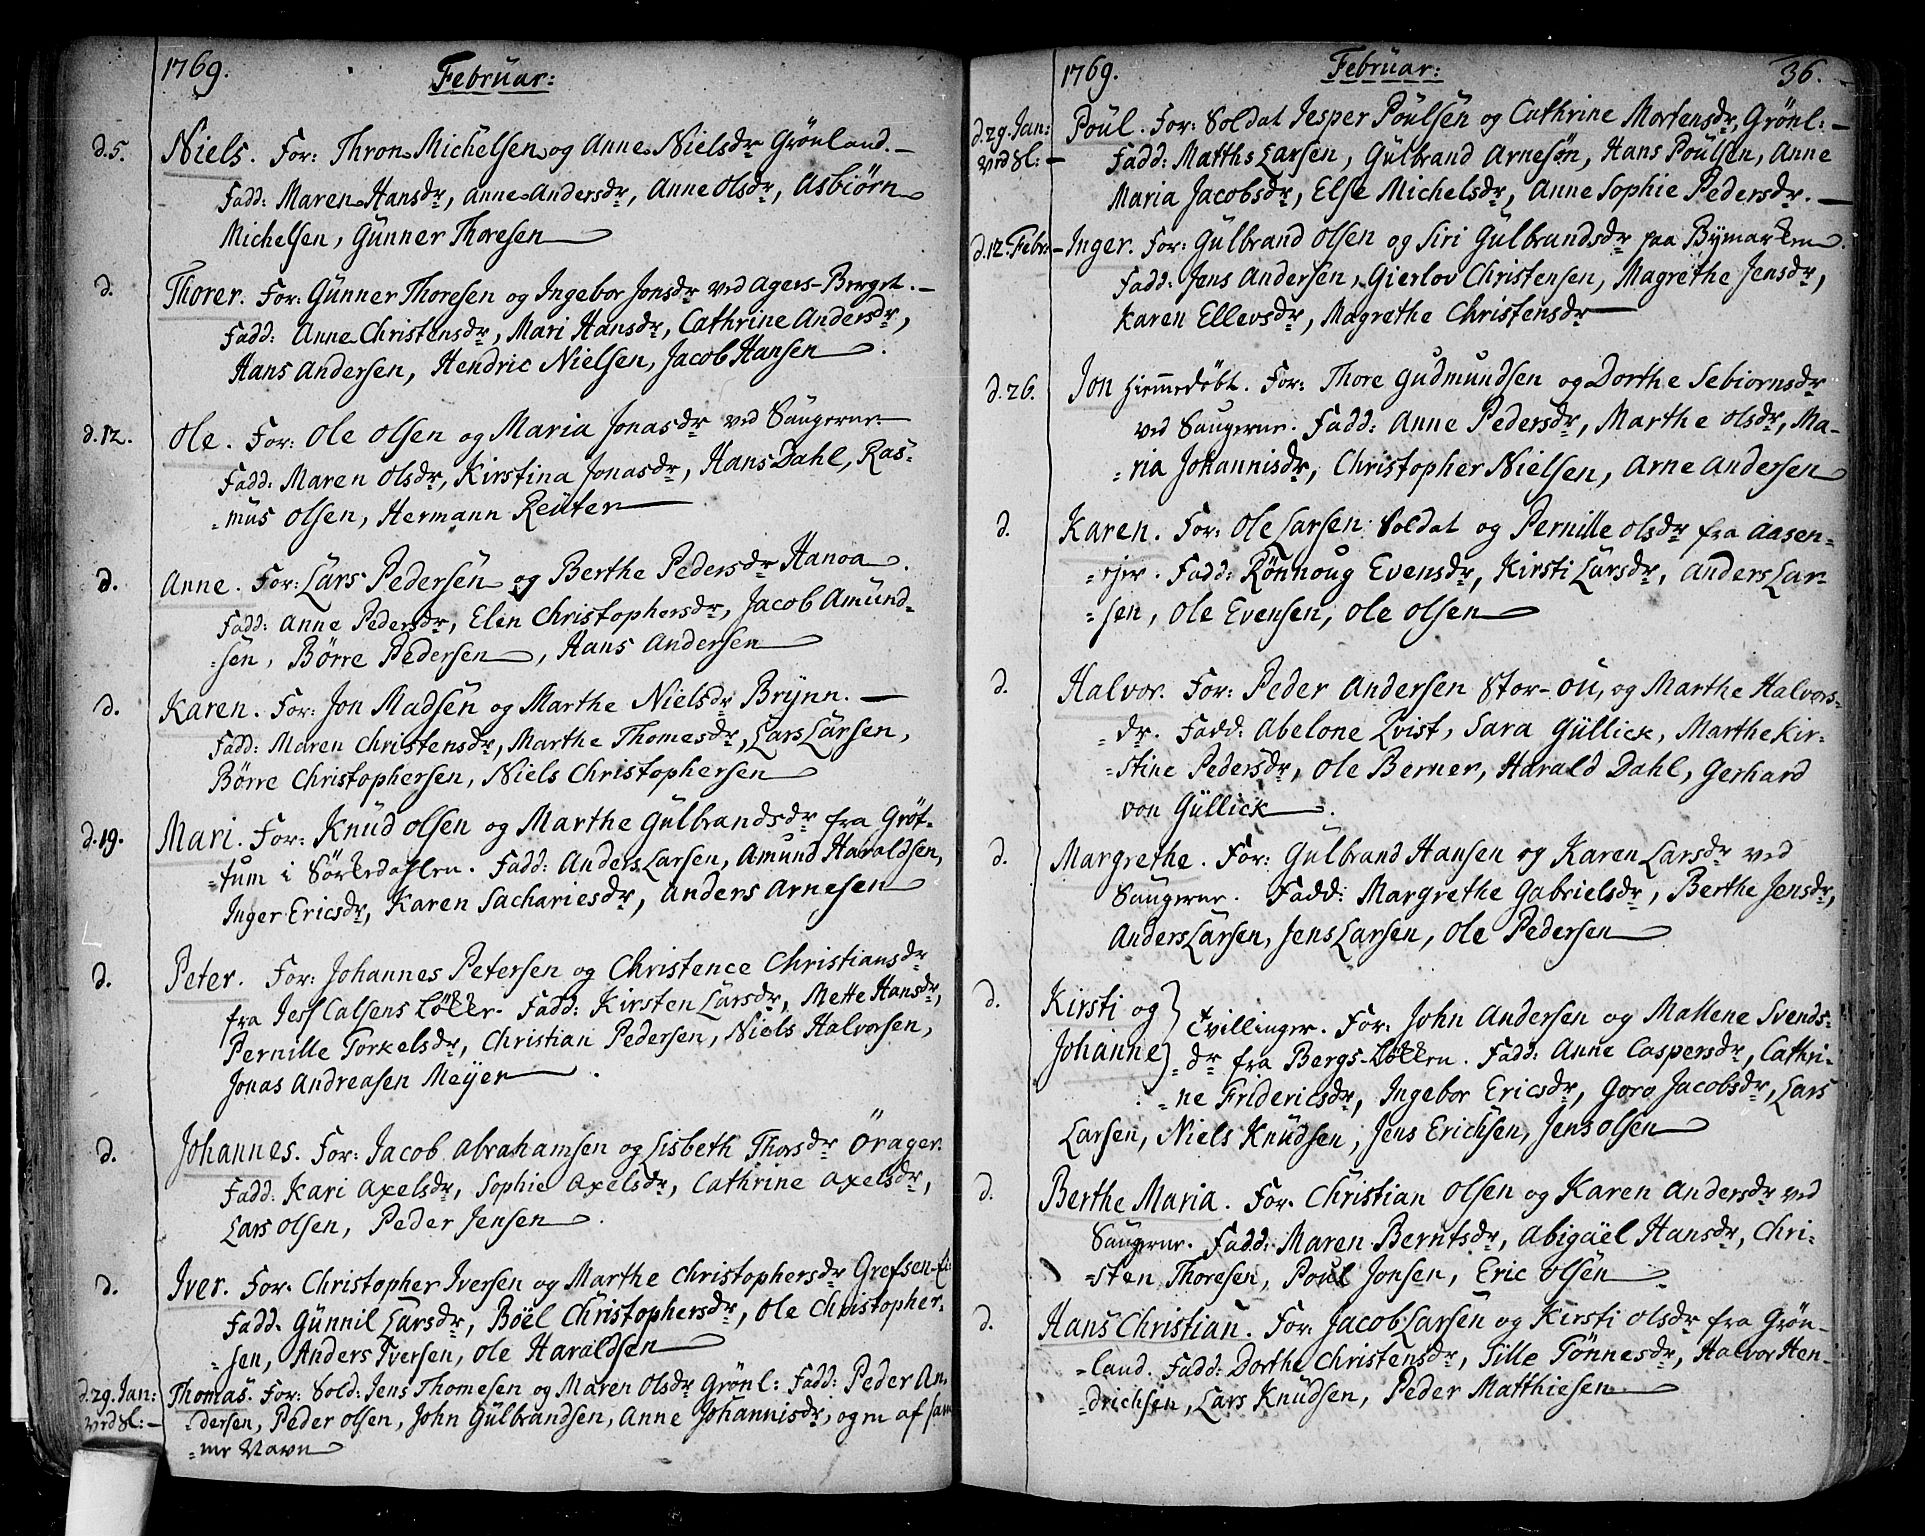 1769. Februar:
d.5. Niels. For: Thron Michelsen og Anne Nielsdr Grönland.
Fadd: Maren Hansdr, Anne Andersdr, Anne Olsdr, Asbiörn
Michelsen, Günner Thoresen
d. Thorer. For: Günner Thoresen og Ingebor Jonsdr ved Agers-Berget.
Fadd: Anne Christensdr, Mari Hansdr, Cathrine Andersdr,
Hans Andersen, Hendric Nielsen, Jacob Hansen.
d.12. Ole. For: Ole Olsen og Maria Jonasdr ved Saugerne
Fadd: Maren Olsdr, Kirstina Jonasdr, Hans Dahl, Ras-
-mus Olsen, Hermann Reuter
d. Anne. For: Lars Pedersen og Berthe Pedersdr Hanoa.
Fadd: Anne Pedersdr, Elen Christophersdr, Jacob Amünd-
-sen, Börre Pedersen, Hans Andersen
d. Karen. For: Jon Madsen og Marthe Nielsdr Brÿnn.
Fadd: Maren Christensdr, Marthe Thomesdr, Lars Larsen,
Börre Christophersen, Niels Christophersen
d.19. Mari. For: Knud Olsen og Marthe Gülbrandsdr fra Gröt-
-tum i Sörkedahlen. Fadd: Anders Larsen, Amund Haraldsen,
Inger Ericsdr, Karen Sachariesdr, Anders Arnesen
d. Peter. For: Johannes Petersen og Christence Christiansdr
fra Jess Calsens Lökke. Fadd: Kirsten Larsdr, Mette Hansdr,
Pernille Torkelsdr, Christian Pedersen, Niels Halvorsen,
Jonas Andreasen Meÿer.
d. Johannes. For: Jacob Abrahamsen og Lisbeth Thorsdr Örager.
Fadd: Kari Axelsdr, Sophie Axelsdr, Cathrine Axelsdr,
Lars Olsen, Peder Jensen.
d. Iver. For: Christopher Iversen og Marthe Christophersdr Grefsen-Ei:
Fadd: Günnil Larsdr, Böel Christophersdr, Ole Christopher-
-sen, Anders Iversen, Ole Haraldsen
d.29. Jan: Thomas. For: Sold: Jens Thomesen og Maren Olsdr Grönl: Fadd: Peder An-
vrd Sl: -dersen, Peder Olsen, John Gülbrandsen, Anne Johannisdr, og en af sam-
-me Navn
1769. Februar: 36.
d.29. Jan: Poul. For: Soldat Jesper Poulsen og Cathrine Mortensdr, Grönl:
vrd Sl: Fadd: Matths Larsen, Gülbrand Arnesön, Hans Poulsen, Anne
Maria Jacobsdr, Else Michelsdr, Anne Sophie Pedersdr.
d.12. Febr: Inger. For: Gülbrand Olsen og Siri Gülbrandsdr paa Bÿmarken.
Fadd: Jens Andersen, Gierlov Christensen, Magrethe Jensdr,
Karen Ellevsdr, Magrethe Christensdr
d.26. Jon hiemmedöbt. For: Thore Gudmundsen og Dorthe Sebiornsdr
ved Saugerne. Fadd: Anne Pedersdr, Marthe Olsdr, Ma-
-ria Johannisdr, Christopher Nielsen, Arne Andersen
d. Karen. For: Ole Larsen Soldat og Pernille Olsdr fra Aasen-
-ejer. Fadd: Rönnoug Evensdr, Kirsti Larsdr, Anders Lar-
-sen, Ole Evensen, Ole Olsen
d. Halvor. For: Peder Andersen Stor-ou, og Marthe Halvors-
-dr. Fadd: Abelone Qvist, Sara Güllick, Marthe Kir-
-stine Pedersdr, Ole Berner, Harald Dahl, Gerhard
von Güllick.
d. Margrethe. For: Gülbrand Hansen og Karen Larsdr ved
Saugerne. Fadd: Margrethe Gabrielsdr, Berthe Jensdr,
Anders Larsen, Jens Larsen, Ole Pedersen
d. Kirsti og } Tvillinger. For: John Andersen og Mallene Svends-
Johanne } -dr fra Bergs-Lökken. Fadd: Anne Caspersdr, Cathri-
-ne Fridericsdr, Ingebor Ericsdr, Goro Jacobsdr, Lars
Larsen, Niels Knüdsen, Jens Erichsen, Jens Olsen
d. Berthe Maria. For: Christian Olsen og Karen Andersdr ved
Saugerne. Fadd: Maren Berntsdr, Abigaël Hansdr, Chri-
-sten Thoresen, Poul Jonsen, Eric Olsen.
d. Hans Christian. For: Jacob Larsen og Kirsti Olsdr fra Grön-
-land. Fadd: Dorthe Christensdr, Sille Tönnesdr, Halvor Hen-
-drichsen, Lars Knüdsen, Peder Matthiesen